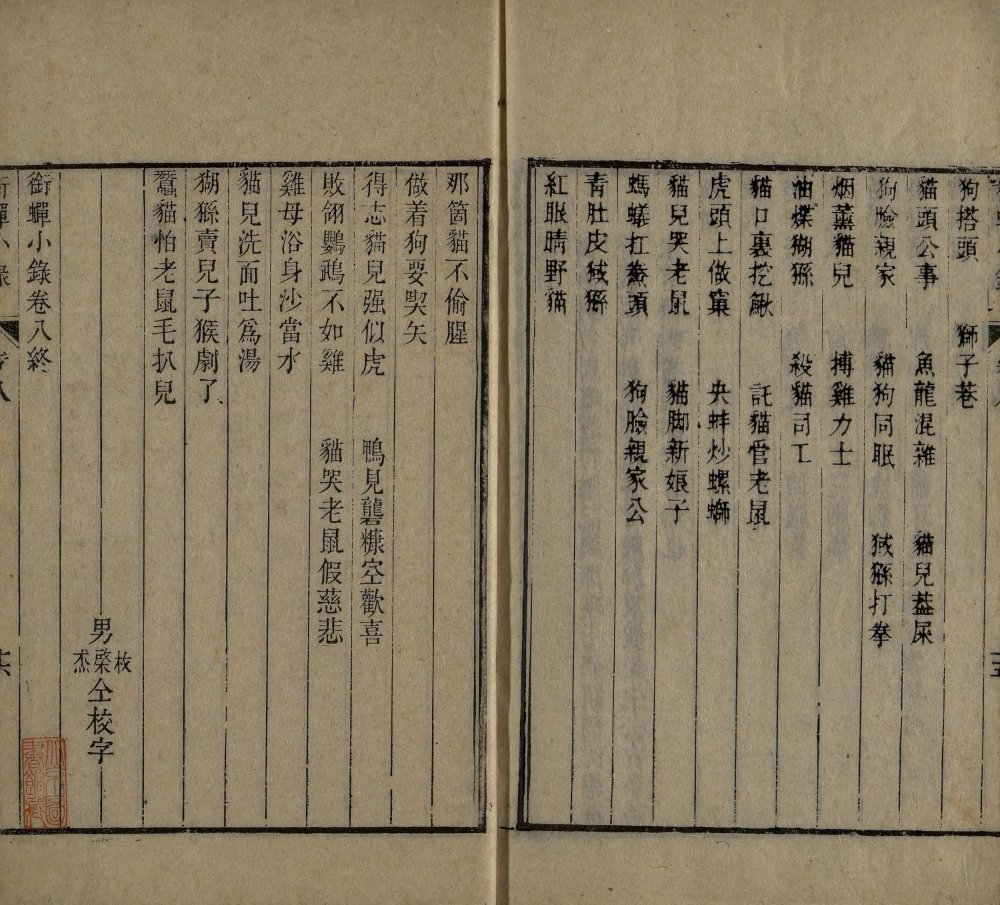 狗搭頭　獅子巷
貓頭公事　魚龍混雜　貓兒葢屎
狗臉親家　貓狗同眠　狨猻打拳
烟薰貓兒　搏雞力士
油煠猢猻　殺貓司工
貓口裏挖鰍　託貓管老鼠
虎頭上做窠　央蚌炒螺螄
貓兒哭老鼠　貓脚新娘子
螞蟻扛鮝頭　狗臉親家公
青肚皮狨猻
紅眼睛野貓
那箇貓不偷腥
做着狗要喫矢
得志貓兒强似虎　鴨見礱糠空歡喜
敗翎鸚鵡不如雞　貓哭老鼠假慈悲
雞母浴身沙當水
貓兒洗面吐爲湯
猢猻賣兒子猴劇了
蠶貓怕老鼠毛扒兒
男 枚 棨 杰 仝校字
銜蟬小錄卷八終